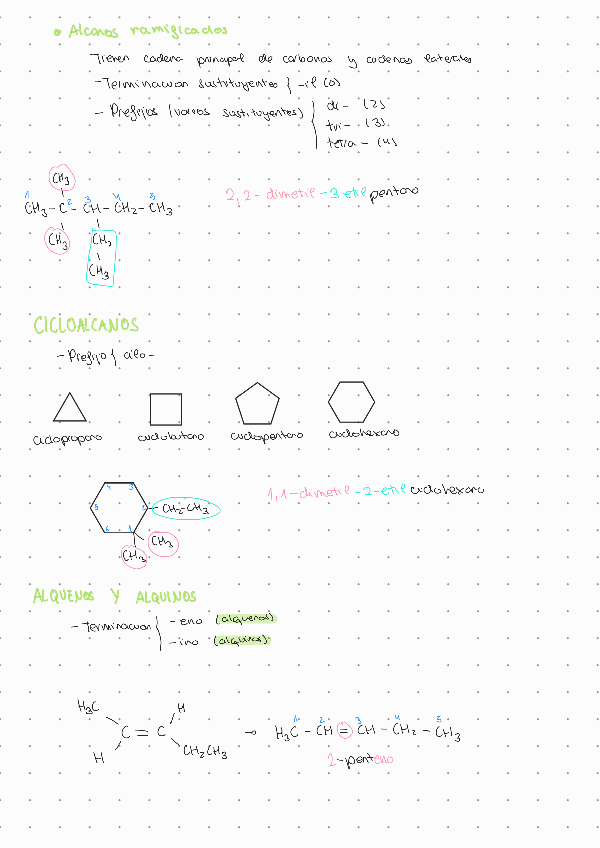 • Alcanos ramificados
Tienen cadena principal de carbonos y cadenas laterales
- Terminacion sustituyentes { -il (o)
- Prefijos (varios sustituyentes) { di- (2)
tri- (3)
tetra- (4)
CH3
1 2 3 4 5
CH3 - C - CH - CH2 - CH3
CH3 CH2
CH3
2,2-dimetil-3 etil pentano
CICLOALCANOS
- Prefijo { ciclo-
ciclopropano ciclobutano ciclopentano ciclohexano
4 3
5 2 - CH2-CH3
6 1 CH3
CH3
1,1-dimetil-2-etil ciclohexano
ALQUENOS Y ALQUINOS
- Terminacion { -eno (alquenos)
-ino (alquinos)
H3C H
C = C
H CH2CH3
→
1 2 3 4 5
H3C - CH = CH - CH2 - CH3
2-penteno